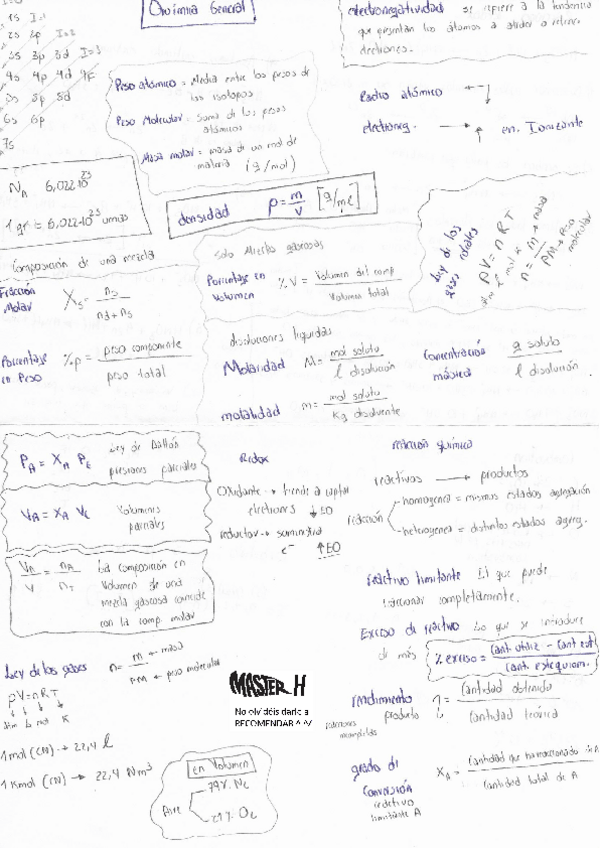 Química General
1s I=1
2s 2p I=2
3s 3p 3d I=3
4s 4p 4d 4f
5s 5p 5d
6s 6p
7s
electronegatividad se refiere a la tendencia
que presentan los átomos a atraer o retener
electrones.
Peso atómico = Media entre los pesos de
los isotopos
Peso Molecular = Suma de los pesos
atómicos
Masa molar = masa de un mol de
materia (g/mol)
Radio atómico
electroneg. en. Ionizante
NA 6,022·10^23
1 gr = 6,022·10^23 umas
densidad ρ = m/v [g/mL]
Ley de los
gases ideales
PV = nRT
atm l mol K
n = m → masa
PM → Peso
molecular
Composición de una mezcla
Fracción
Molar Xs = ns / nd + ns
Porcentaje
en Peso %p = peso componente / peso total
Solo Mezclas gaseosas
Porcentaje en
Volumen % V = Volumen del comp / Volumen total
disoluciones liquidas
Molaridad M = mol soluto / l disolución
molalidad m = mol soluto / Kg disolvente
Concentración
másica g soluto / l disolución
PA = XA Pt Ley de Dalton
presiones parciales
VA = XA Vt Volumenes
parciales
VA / V = nA / nt La composición en
Volumen de una
mezcla gaseosa coincide
con la comp. molar
Redox
Oxidante → tiende a captar
electrones ↓EO
reductor → suministra
e⁻ ↑EO
reacción química
reactivos → productos
reacción
homogenea = mismos estados agregación
heterogenea = distintos estados agreg.
reactivo limitante El que puede
reaccionar completamente.
Exceso de reactivo Lo que se introduce
de más
% exceso = Cant. utiliz - Cant est / Cant. estequiom.
rendimiento η = Cantidad obtenida / Cantidad teórica
reacciones producto
incompletas
grado di
Conversión XA = Cantidad que ha reaccionado de A / Cantidad total de A
reactivo
limitante A
Ley de los gases n = m ← masa
PM ← peso molecular
pV = nRT
atm l mol K
1 mol (CN) → 22,4 l
1 Kmol (CN) → 22,4 Nm³
en Volumen
Aire
79% N2
21% O2
MASTER H
No olvidéis darle a
RECOMENDAR